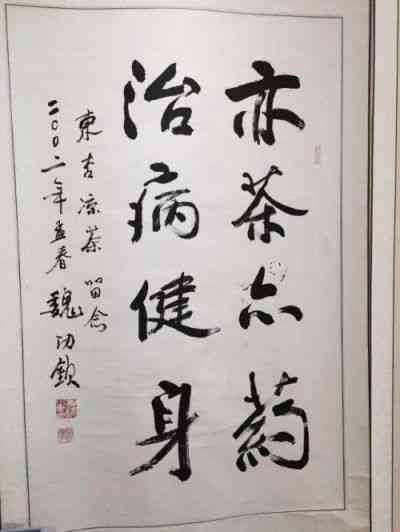 亦茶亦葯
治病健身
東凉茶 留念
二〇〇二年孟春 魏功欽